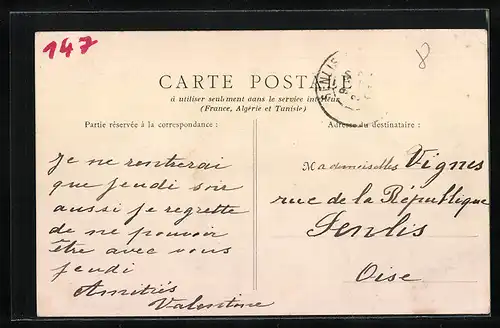 147
8
CARTE POSTALE
à utiliser seulement dans le service intérieur
(France, Algérie et Tunisie)
SENLIS
Partie réservée à la correspondance :
Adresse du destinataire :
Je ne rentrerai
que jeudi soir
aussi je regrette
de ne pouvoir
être avec vous
jeudi
Amitiés
Valentine
Mademoiselles Vignes
rue de la République
Senlis
Oise